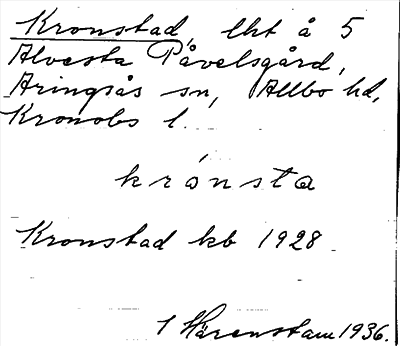 Kronstad, lht å 5
Alvesta Påvelsgård,
Aringsås sn, Allbo hd,
Kronobs l.
krónsta
Kronstad kb 1928
1 Härenstam 1936.